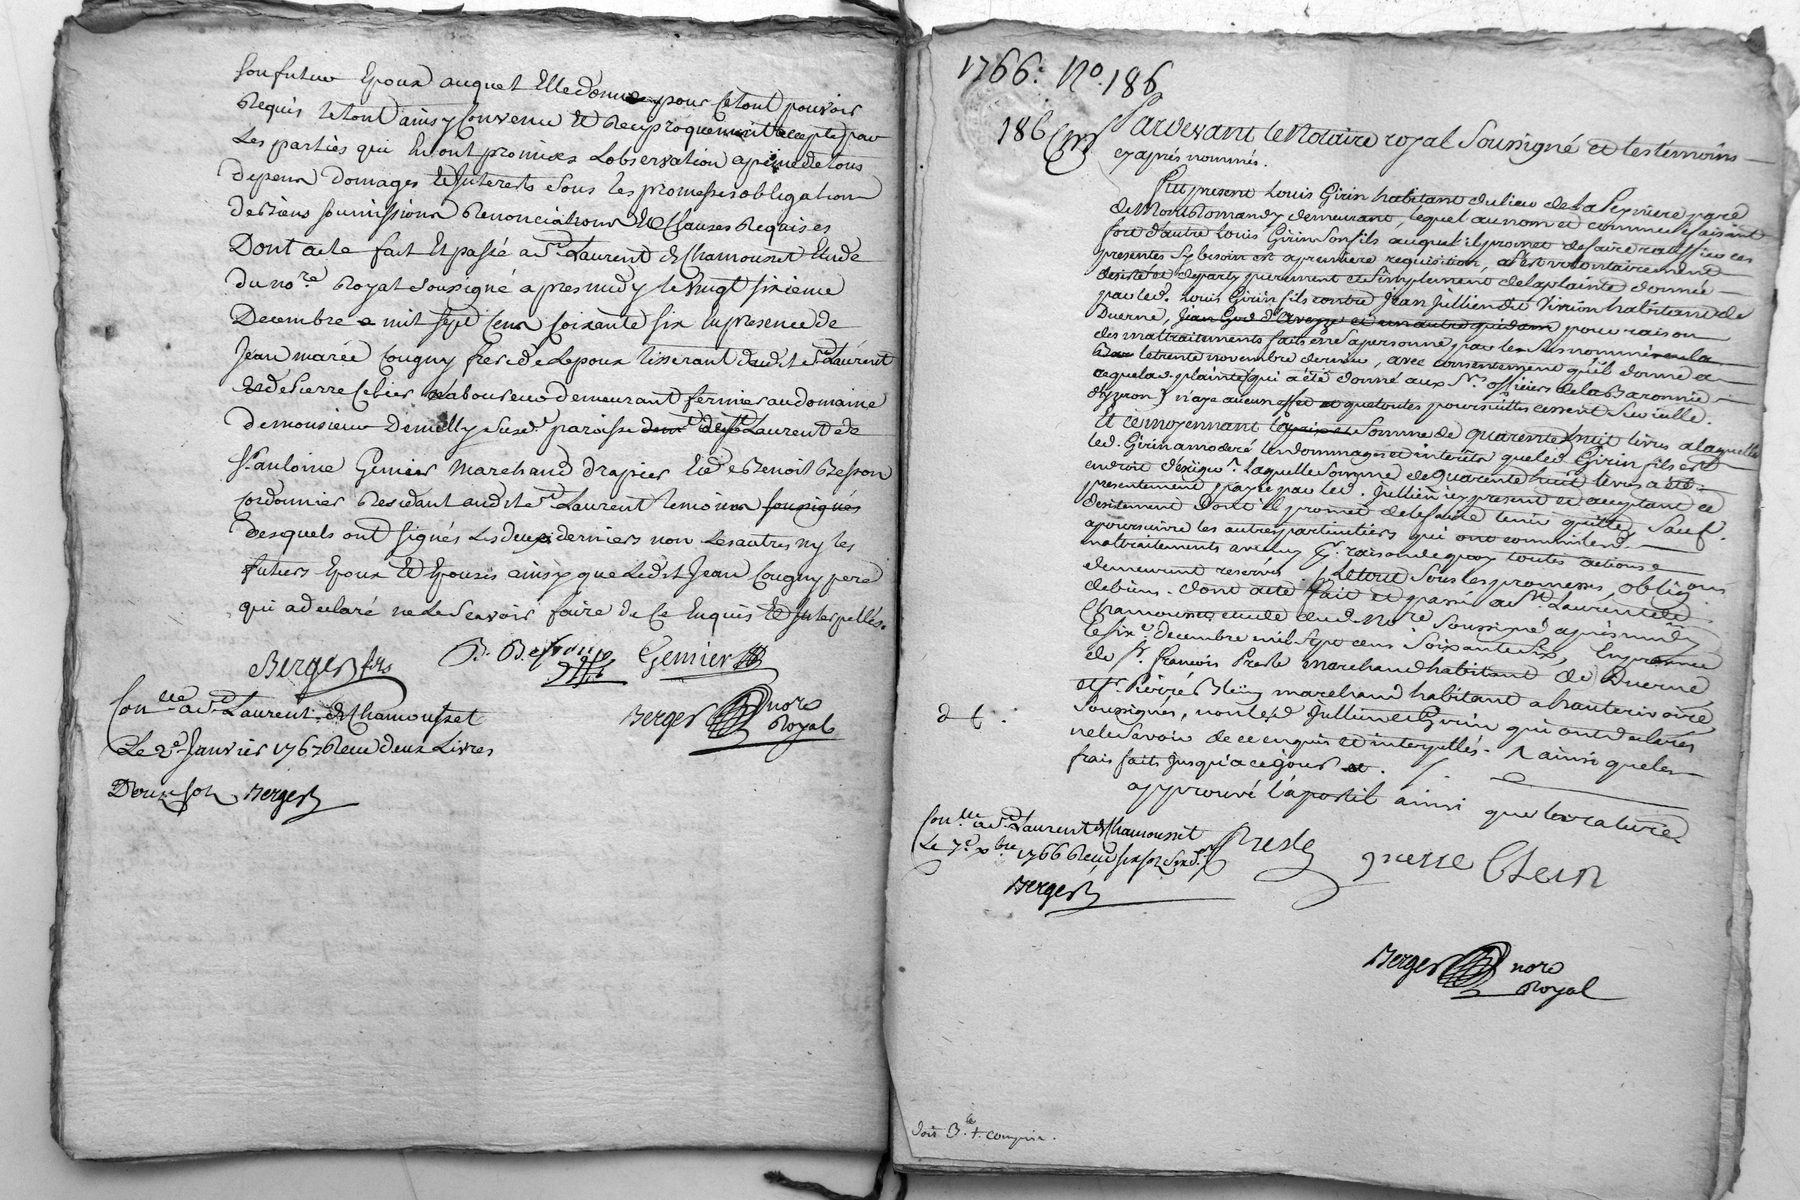 son futur Epoux auquel Elle donne pour ce tout pouvoir
Requis le tout ainsy Convenu Et Recyproquement accepté par
Les parties qui En ont promixs Lobservation a peine de tous
depens Domages Et Interests sous les promesses obligation
de Biens soumissions Renonciations Et Clauses Requises
Dont acte fait Et passé a St Laurent de Chamousset Etude
du nore Royal soussigné apres midy le vingt sixieme
Decembre mil sept cens soixante six En presence de
Jean marée Cougny frere de Lepoux tisserant dudit St Laurent
Et de Pierre laboureur demeurant fermier au domaine
de monsieur Demilly susd. paroisse St Laurent de
Sr antoine Gemier Marchand drapier Et de Benoit Besson
Cordonnier Residant audit St Laurent temoins soussignés
Desquels ont signés Les deux derniers non Les autres ny les
futurs Epoux Et Epouse ainsy que Ledit Jean Cougny pere
qui a declaré ne Le Scavoir faire de Ce Enquis Et Interpellés.
Berger fils B. Gemier
Berger nore Royal
Con.lle a St Laurent de Chamousset
Le 2e Janvier 1767 Receu deux Livres
Douze sols Berger
1766: No. 186
186 Pardevant le Notaire royal Soussigné et les temoins
cy après nommés.
Fut present Louis Girin habitant du lieu de la Peyniere parsse
de Montromand y demeurant, lequel au nom et comme faisant
fort d'autre Louis Girin Son fils auquel il promet de faire ratiffier ces
presentes Sy besoin est a premiere requisition, s'est volontairement
desisté et departy purement et Simplement de la plainte donnée
par led. Louis Girin fils contre Jean Jullien dit Simon habitant de
Duerne, pour raison
des maltraitements faits en Sa personne par les Susnommés
le trente novembre dernier, avec consentement qu'il donne a
ce que lad. plainte (qui a été donné aux Srs officiers de la Baronnie
d'yzeron) n'aye aucun effet et que toutes poursuittes cessent Sur icelle.
Et ce moyennant la Somme de quarente huit livres a laquelle
led. Girin a moderé les dommages et interets que led Girin fils est
en droit d'exiger. laquelle Somme de quarente huit livres a été
presentement payée par led. Jullien icy present et acceptant ce
desistement dont il promet de le faire tenir quitte, Sauf
a poursuivre les autres particuliers qui ont commis led.
maltraitements avec luy pr. raison de quoy toutes actions
demeurent reservés. Le tout Sous les promesses, obligons
de biens. dont acte fait et passé au St Laurent de
Chamousset etude dud. Nore Soussigné après midy
le six e. decembre mil sept cens Soixante Six, En presence
de Sr. francois Preste marchand habitant de Duerne
et Sr. Pierre marchand habitant a hauterivoire
Soussignés, non led Jullien et Girin qui ont declarés
ne le Savoir de ce enquis et interpellés. ainsi que les
frais faits Jusqu'a ce jour.
approuvé l'apostil ainsi que la rature
Con.lle a St Laurent de Chamousset
Le 7e xbre 1766 Receu six sols Six d.
Berger
Preste
pierre
Berger nore Royal
doit 3. compris.